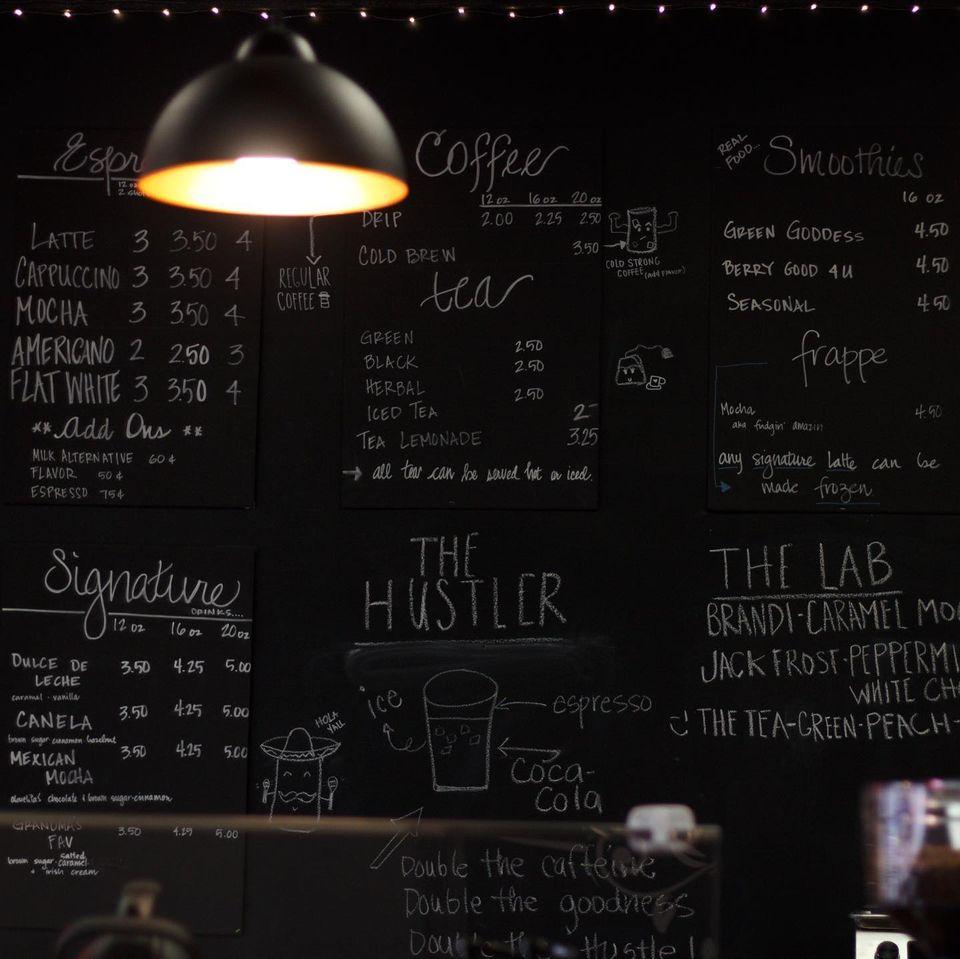 12 oz
LATTE 3 3.50 4
CAPPUCCINO 3 3.50 4
MOCHA 3 3.50 4
AMERICANO 2 2.50 3
FLAT WHITE 3 3.50 4
** Add Ons **
MILK ALTERNATIVE 60¢
FLAVOR 50¢
ESPRESSO 75¢
REGULAR
COFFEE
Coffee
12 oz 16 oz 20 oz
DRIP 2.00 2.25 2.50
COLD BREW 3.50
COLD STRONG
COFFEE (add flavor)
tea
GREEN 2.50
BLACK 2.50
HERBAL 2.50
ICED TEA 2-
TEA LEMONADE 3.25
all tea can be served hot or iced.
REAL
FOOD...
Smoothies
16 oz
GREEN GODDESS 4.50
BERRY GOOD 4U 4.50
SEASONAL 4.50
frappe
Mocha 4.50
aka fudgin' amazin
any signature latte can be
made frozen
Signature
DRINKS....
12 oz 16 oz 20 oz
DULCE DE 3.50 4.25 5.00
LECHE
caramel - vanilla
CANELA 3.50 4.25 5.00
brown sugar cinnamon hazelnut
MEXICAN 3.50 4.25 5.00
MOCHA
abuelita's chocolate & brown sugar-cinnamon
GRANDMA'S 3.50 4.25 5.00
FAV
salted
brown sugar caramel
+ irish cream
HOLA
YALL
THE
HUSTLER
ice
espresso
coca-
cola
Double the caffeine
Double the goodness
Double the Hustle!
THE LAB
BRANDI-CARAMEL MO
JACK FROST-PEPPERMI
WHITE CH
THE TEA-GREEN-PEACH-